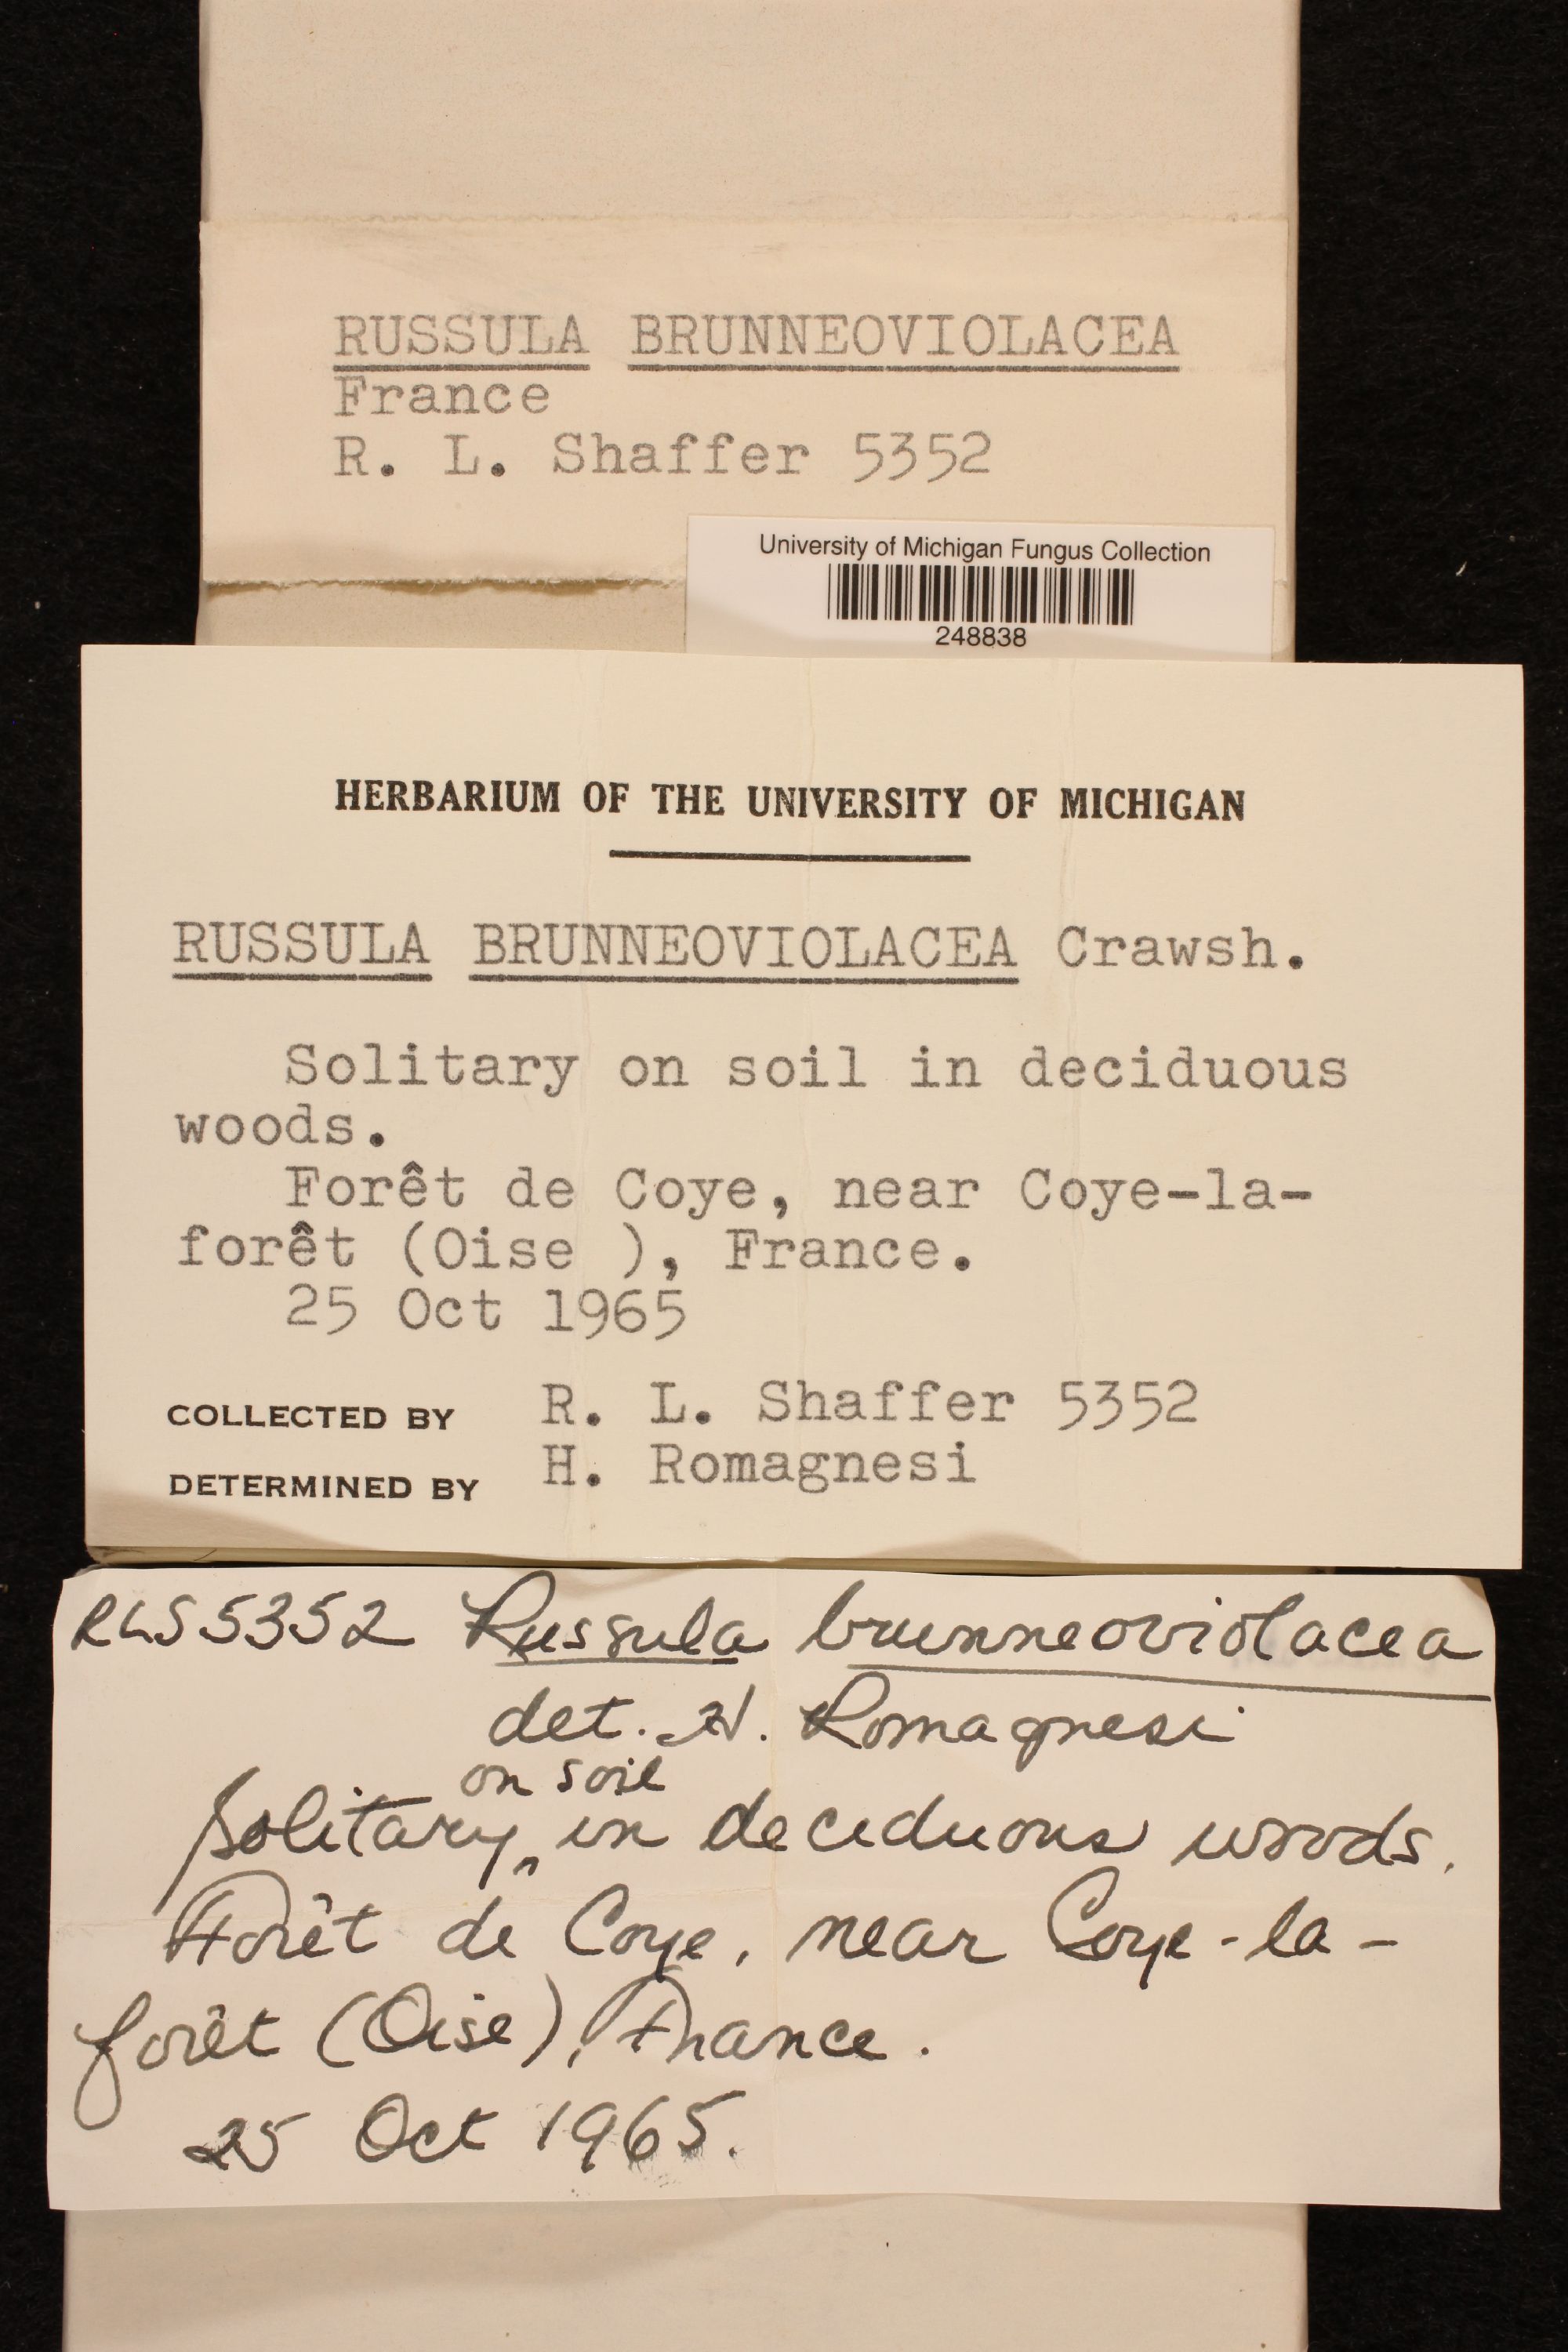 RUSSULA BRUNNEOVIOLACEA
France
R. L. Shaffer 5352
University of Michigan Fungus Collection
248838
HERBARIUM OF THE UNIVERSITY OF MICHIGAN
RUSSULA BRUNNEOVIOLACEA Crawsh.
Solitary on soil in deciduous
woods.
Forêt de Coye, near Coye-la-
forêt (Oise ), France.
25 Oct 1965
COLLECTED BY R. L. Shaffer 5352
DETERMINED BY H. Romagnesi
RLS 5352 Russula brunneoviolacea
det. H. Romagnesi
on soil
Solitary ‸ in deciduous woods.
Forêt de Coye, near Coye-la-
forêt (Oise), France.
25 Oct 1965.